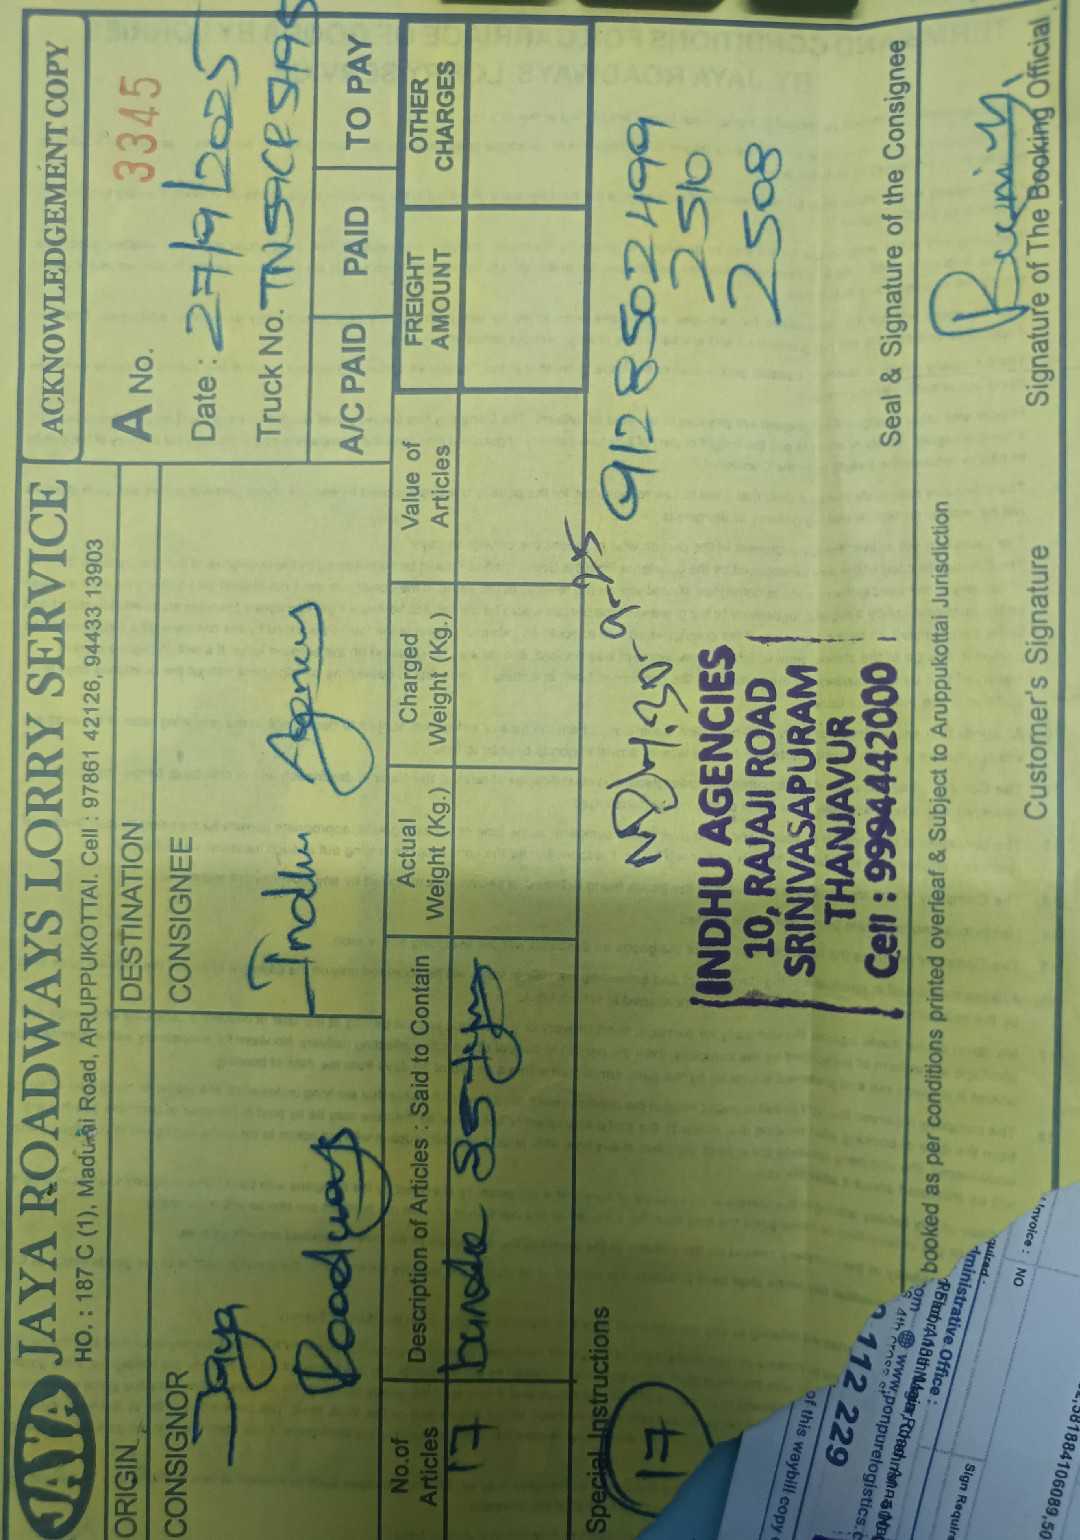 JAYA
JAYA ROADWAYS LORRY SERVICE
HO. : 187 C (1), Madurai Road, ARUPPUKOTTAI. Cell : 97861 42126, 94433 13903
ACKNOWLEDGEMENT COPY
A No. 3345
Date : 27/9/2025
Truck No.
ORIGIN
DESTINATION
CONSIGNOR
Jaya
Roadways
CONSIGNEE
Indhu Agency
A/C PAID
PAID
TO PAY
No.of
Articles
Description of Articles : Said to Contain
Actual
Weight (Kg.)
Charged
Weight (Kg.)
Value of
Articles
FREIGHT
AMOUNT
OTHER
CHARGES
17
Special Instructions
17
9128502499
2510
2508
INDHU AGENCIES
10, RAJAJI ROAD
SRINIVASAPURAM
THANJAVUR
Cell : 9994442000
Seal & Signature of the Consignee
booked as per conditions printed overleaf & Subject to Aruppukottai Jurisdiction
Customer's Signature
Signature of The Booking Official
112 229
of this waybill copy
www.ponpurelogistics.c
dministrative Office :
Invoice : NO
Sign Requir